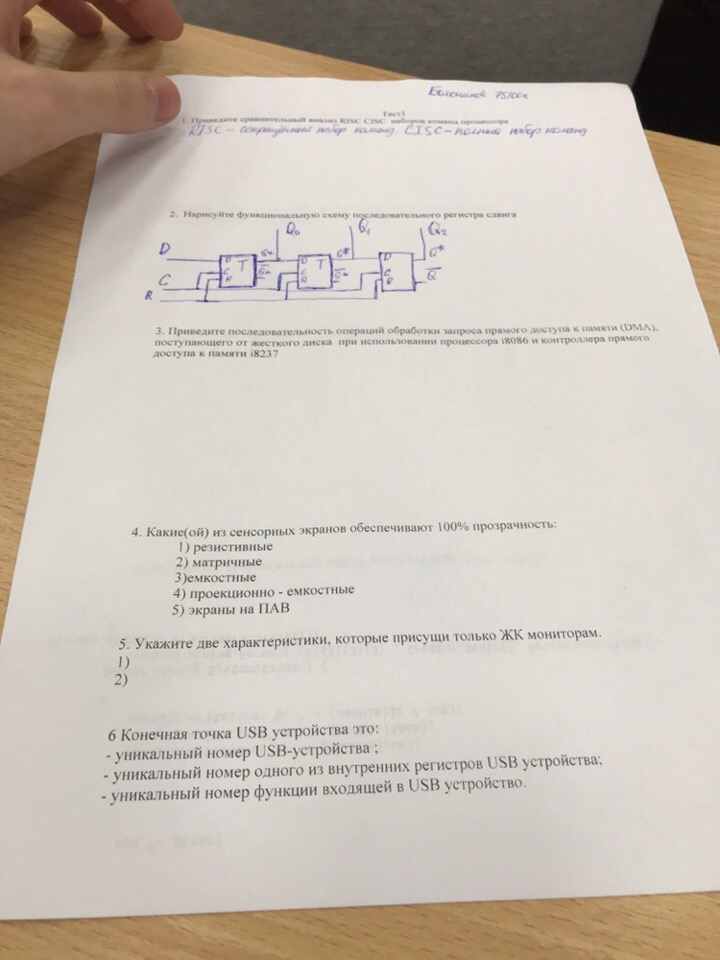 Тест3
1. Приведите сравнительный анализ RISC CISC наборов команд процессора
RISC – сокращённый набор команд, CISC – полный набор команд
2. Нарисуйте функциональную схему последовательного регистра сдвига
Q₀ Q₁ Q₂
D D T D T D
C C C C
R R R R
3. Приведите последовательность операций обработки запроса прямого доступа к памяти (DMA),
поступающего от жесткого диска при использовании процессора i8086 и контроллера прямого
доступа к памяти i8237
4. Какие(ой) из сенсорных экранов обеспечивают 100% прозрачность:
1) резистивные
2) матричные
3)емкостные
4) проекционно - емкостные
5) экраны на ПАВ
5. Укажите две характеристики, которые присущи только ЖК мониторам.
1)
2)
6 Конечная точка USB устройства это:
- уникальный номер USB-устройства ;
- уникальный номер одного из внутренних регистров USB устройства;
- уникальный номер функции входящей в USB устройство.